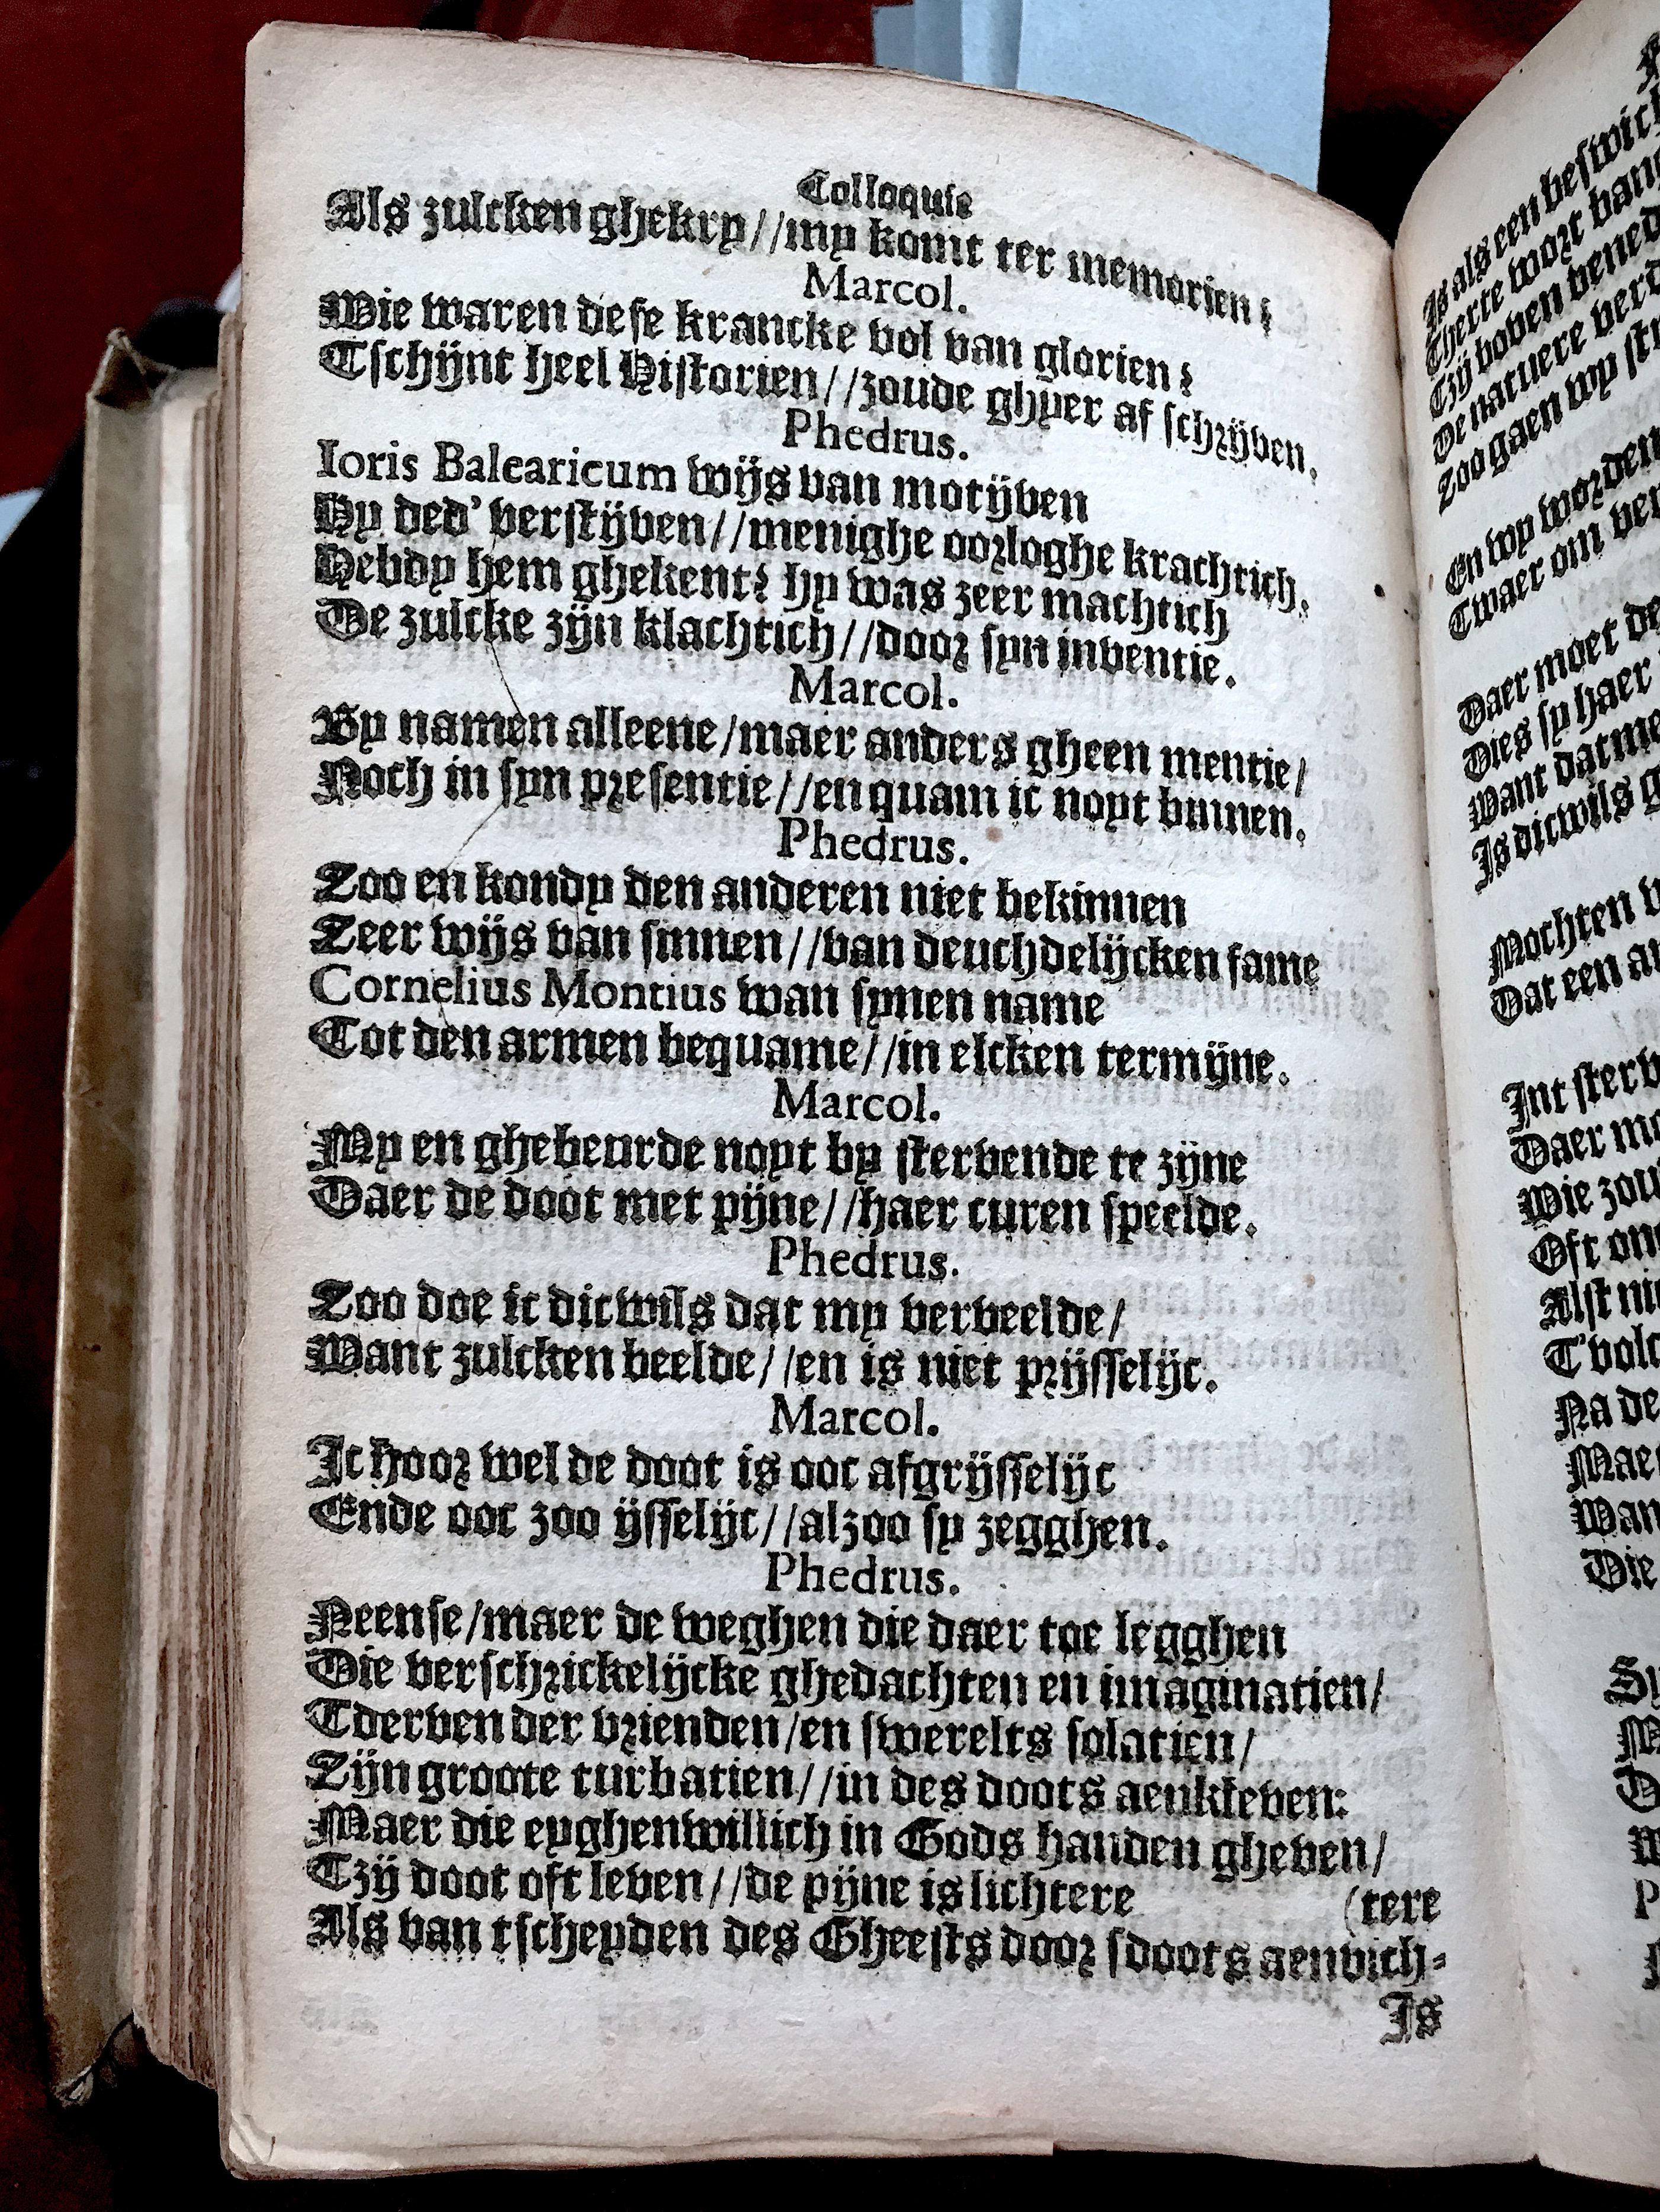 Colloquie
Als zulcken ghekry//my komt ter memorien?
Marcol.
Wie waren dese krancke vol van glorien?
Tschijnt heel Historien//zoude ghyer af schrijven.
Phedrus.
Ioris Balearicum wijs van motijven
Hy ded' verstijven//menighe oorloghe krachtich,
Hebdy hem ghekent? hy was zeer machtich
De zulcke zijn klachtich//door syn inventie.
Marcol.
By namen alleene/maer anders gheen mentie/
Noch in syn presentie//en quam ic noyt binnen.
Phedrus.
Zoo en kondy den anderen niet bekinnen
Zeer wijs van sinnen//van deuchdelijcken fame
Cornelius Montius wan synen name
Tot den armen bequame//in elcken termijne.
Marcol.
My en ghebeurde noyt by stervende te zijne
Daer de doot met pijne//haer curen speelde.
Phedrus.
Zoo doe ic dicwils dat my verveelde/
Want zulcken beelde//en is niet prijsselijc.
Marcol.
Ic hoor wel de doot is ooc afgrijsselijc
Ende ooc zoo ijsselijc//alzoo sy zegghen.
Phedrus.
Neense/maer de weghen die daer toe legghen
Die verschrickelijcke ghedachten en imaginatien/
Tderven der vrienden/en swerelts solatien/
Zijn groote turbatien//in des doots aenkleven:
Maer die eyghenwillich in Gods handen gheven/
Tzij doot oft leven//de pijne is lichtere
(tere
Als van tscheyden des Gheests door sdoots aenvich-
Is
Is als een
Therte wort
Tzij boven
De natuere
Zoo gaen wy
En wy worden
Twaer om
Daer moet
Dies sy haer
Want datme
Is dicwils
Mochten
Dat een
Int
Daer
Wie
Oft
Alst
Na de